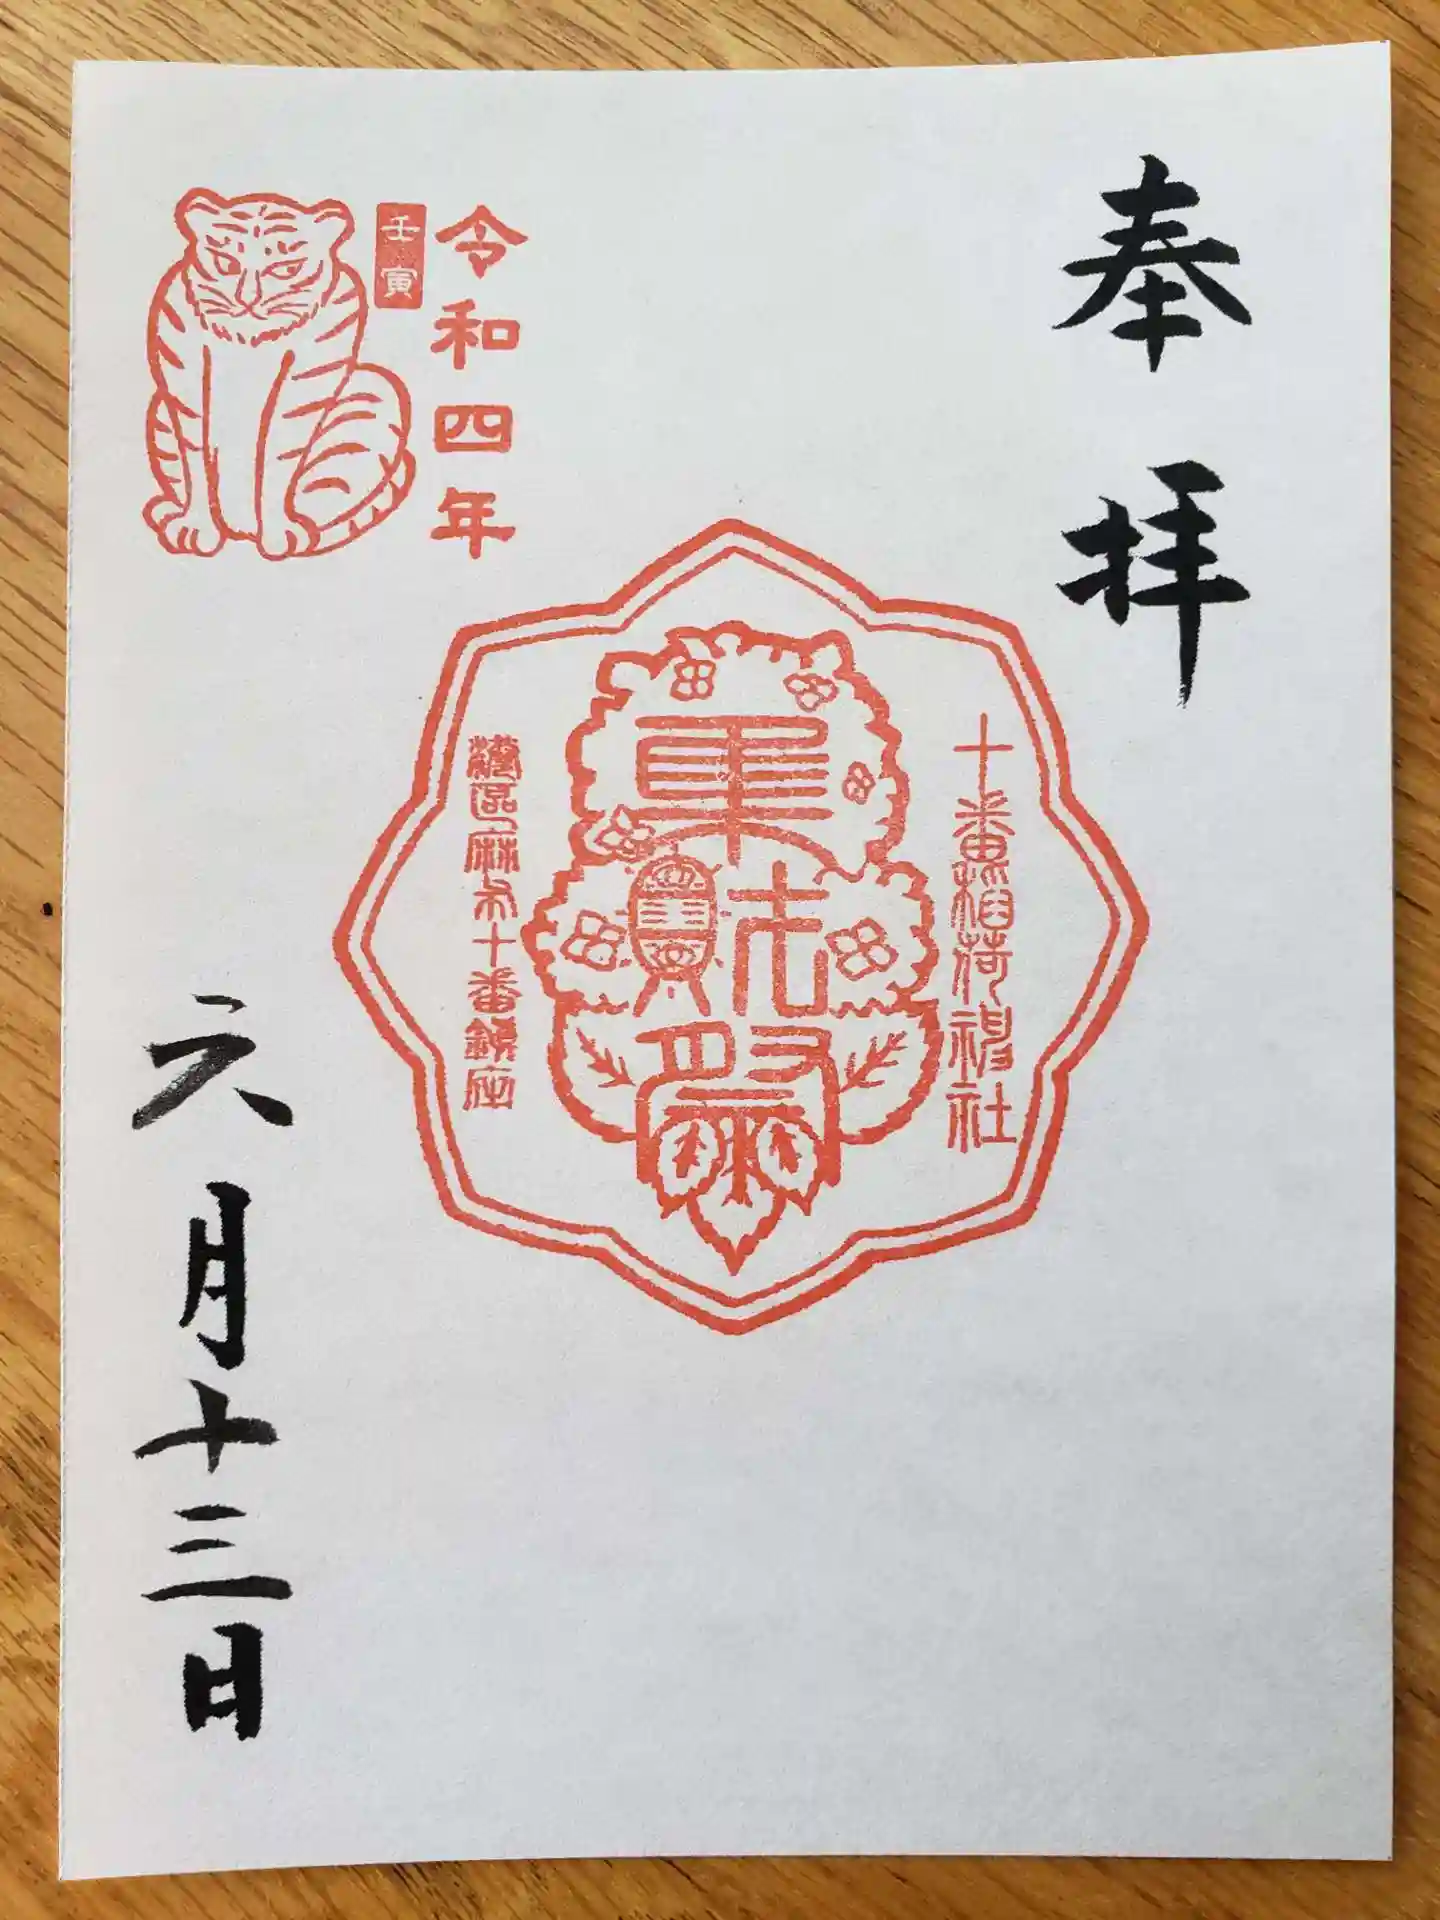 奉拝
十番稲荷神社
港區麻布十番鎮座
令和四年
壬寅
六月十三日